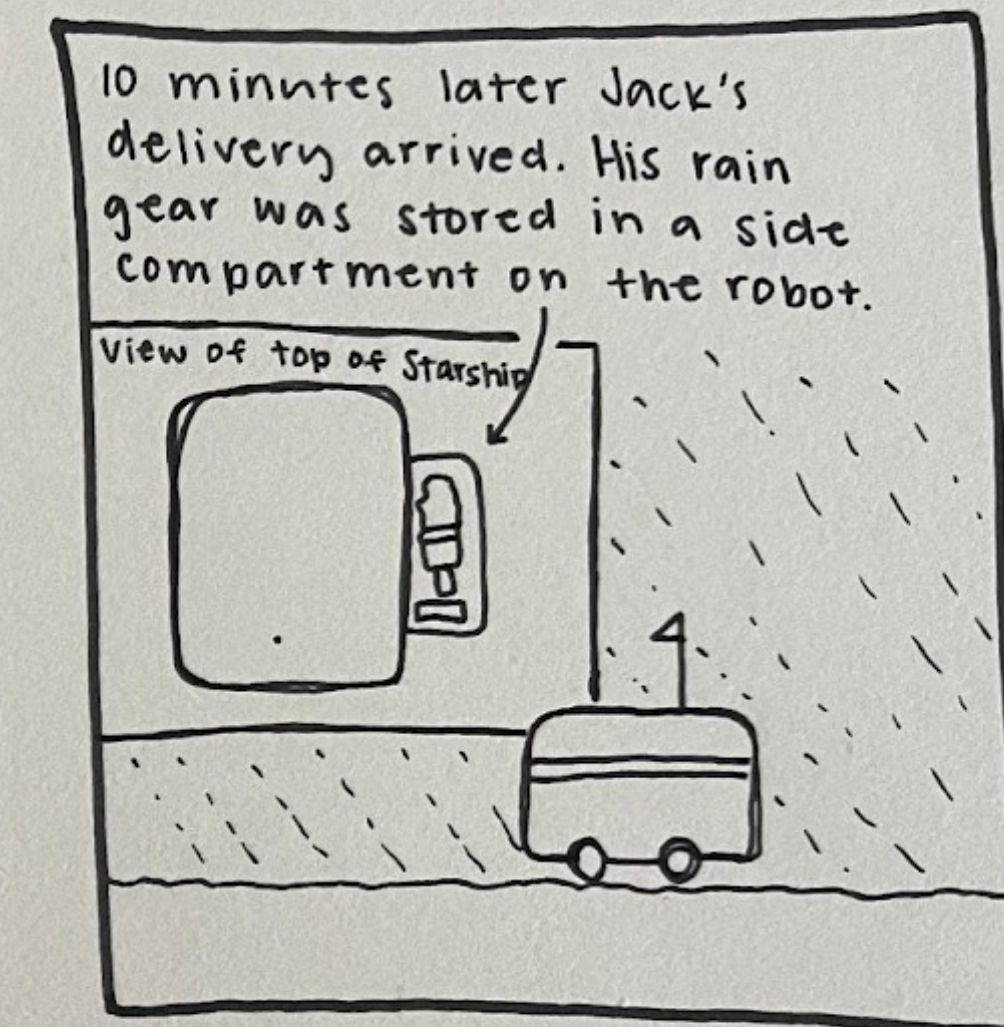 10 minutes later Jack's
delivery arrived. His rain
gear was stored in a side
compartment on the robot.
View of top of Starship